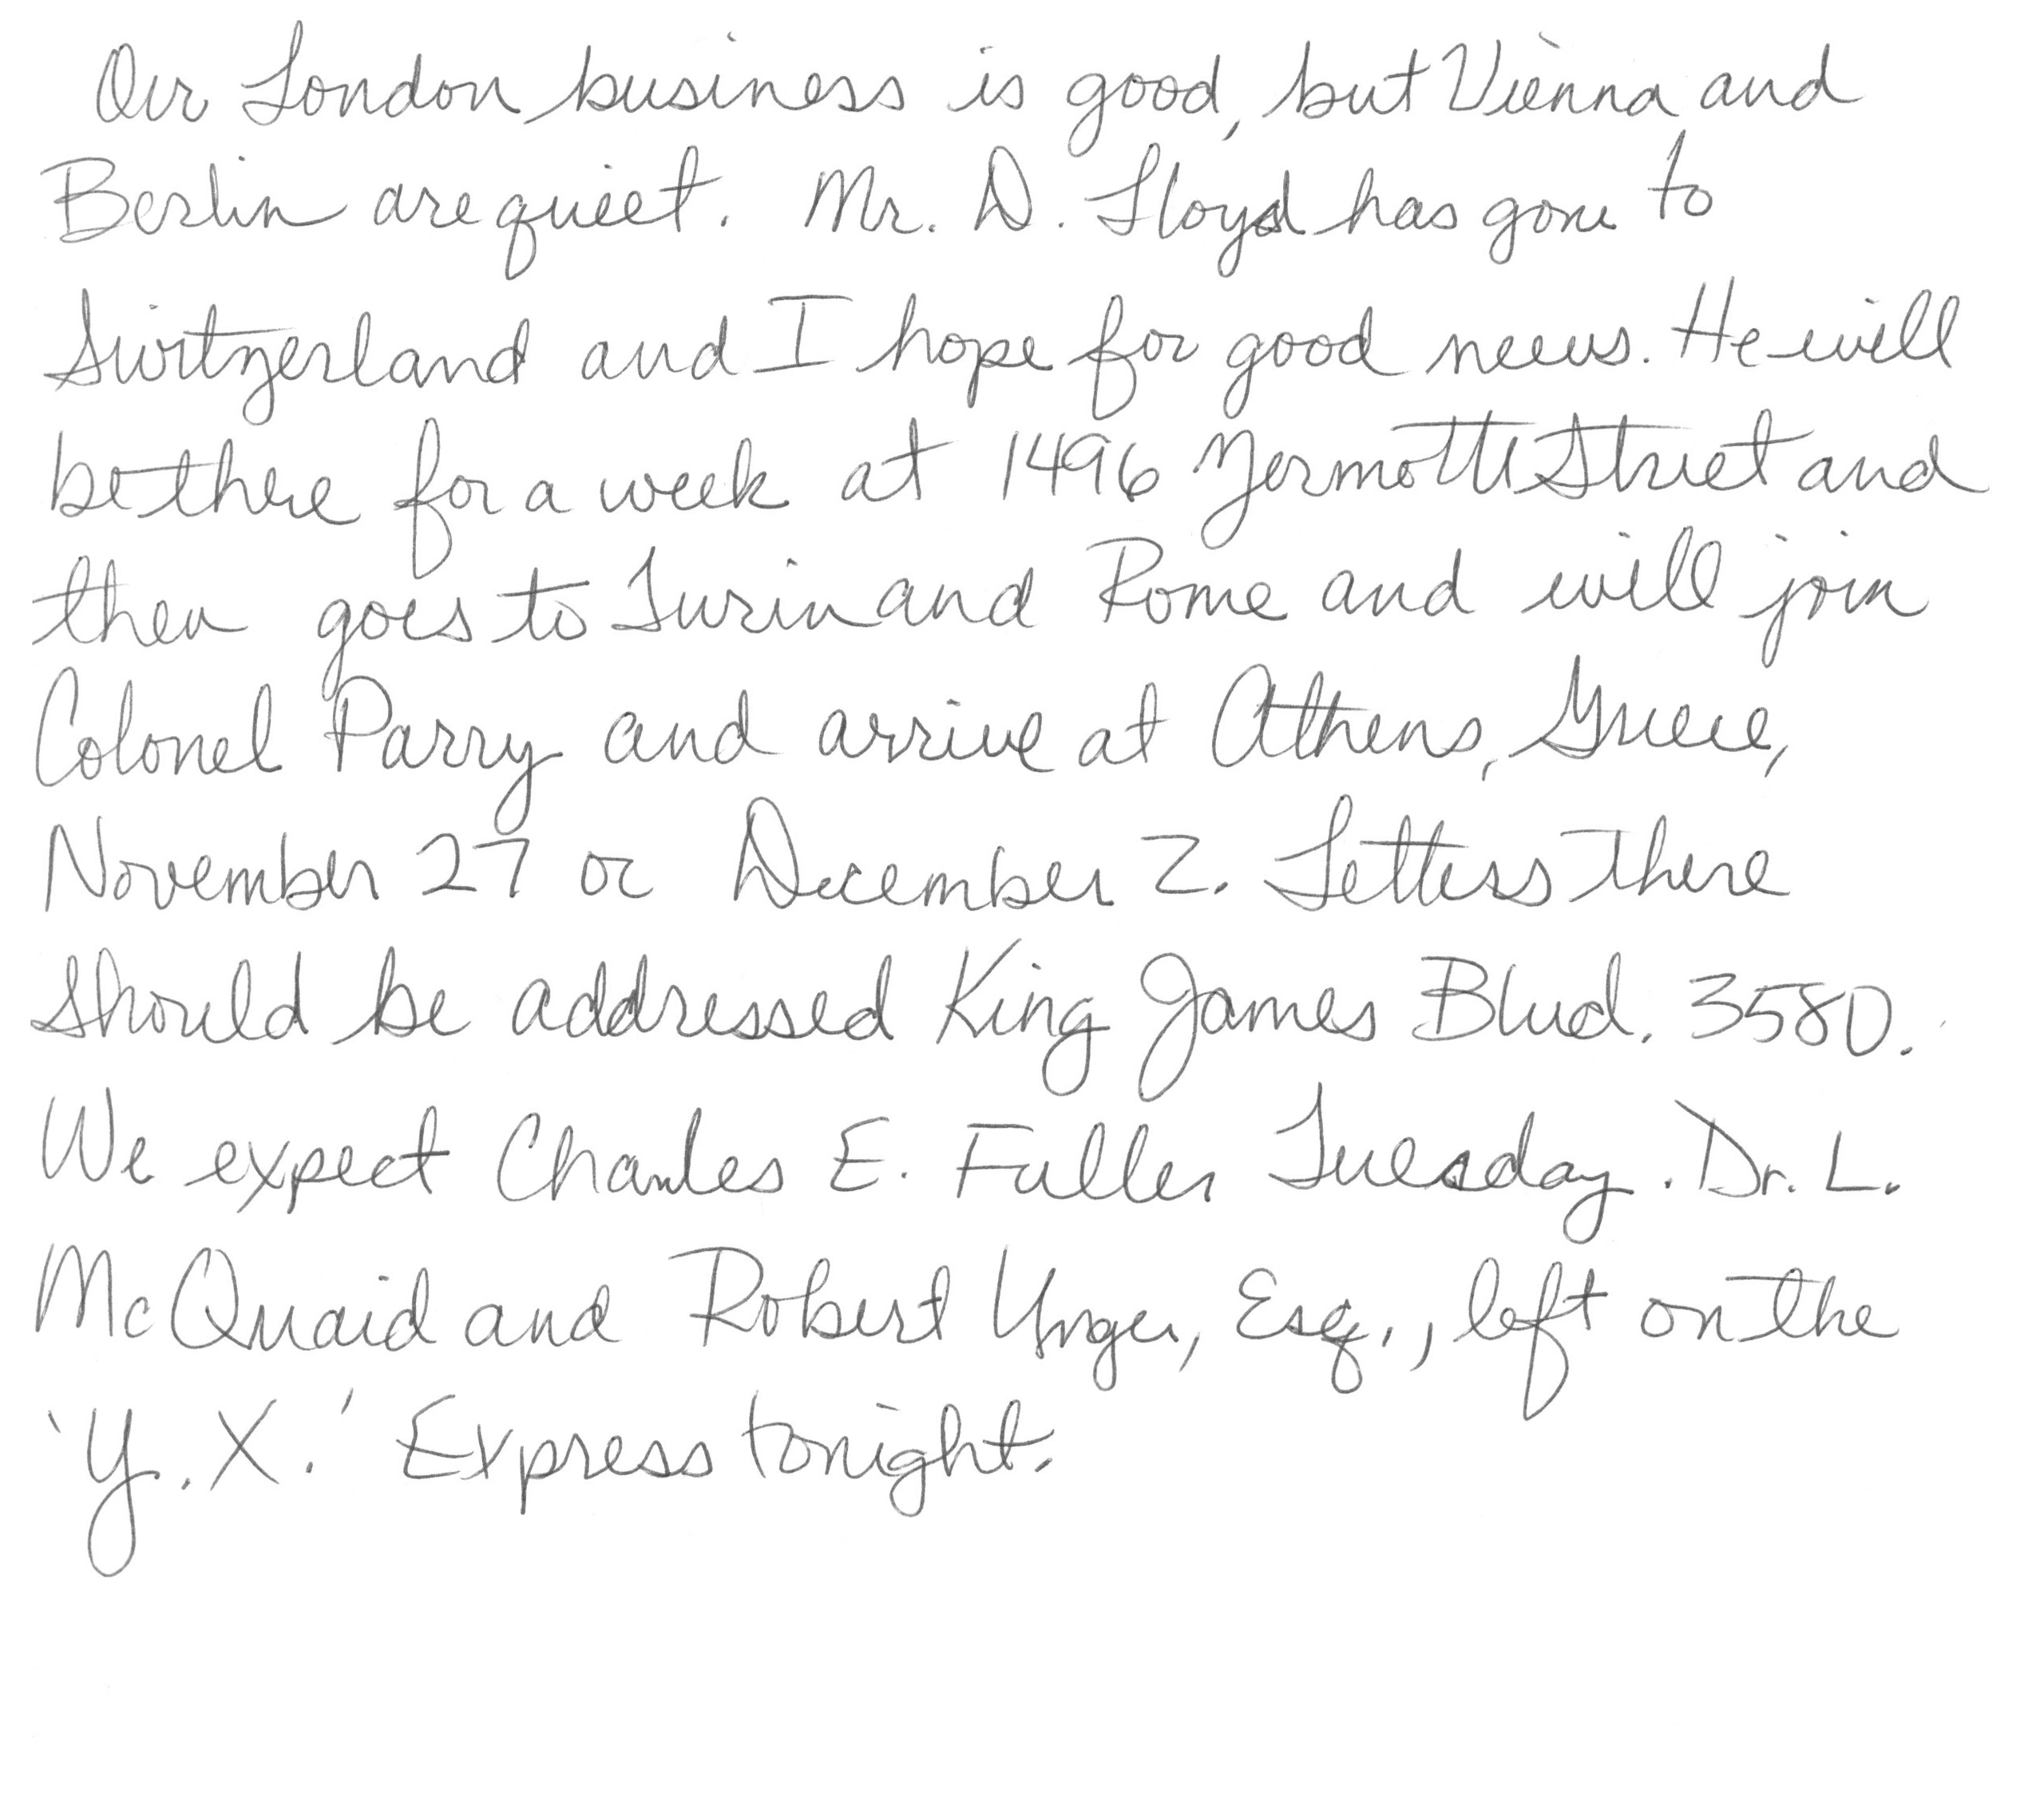 Our London business is good, but Vienna and
Berlin are quiet. Mr. D. Lloyd has gone to
Switzerland and I hope for good news. He will
be there for a week at 1496 Zermott Street and
then goes to Turin and Rome and will join
Colonel Parry and arrive at Athens, Greece,
November 27 or December 2. Letters there
should be addressed King James Blvd. 3580.
We expect Charles E. Fuller Tuesday. Dr. L.
McQuaid and Robert Unger, Esq., left on the
'Y. X.' Express tonight.